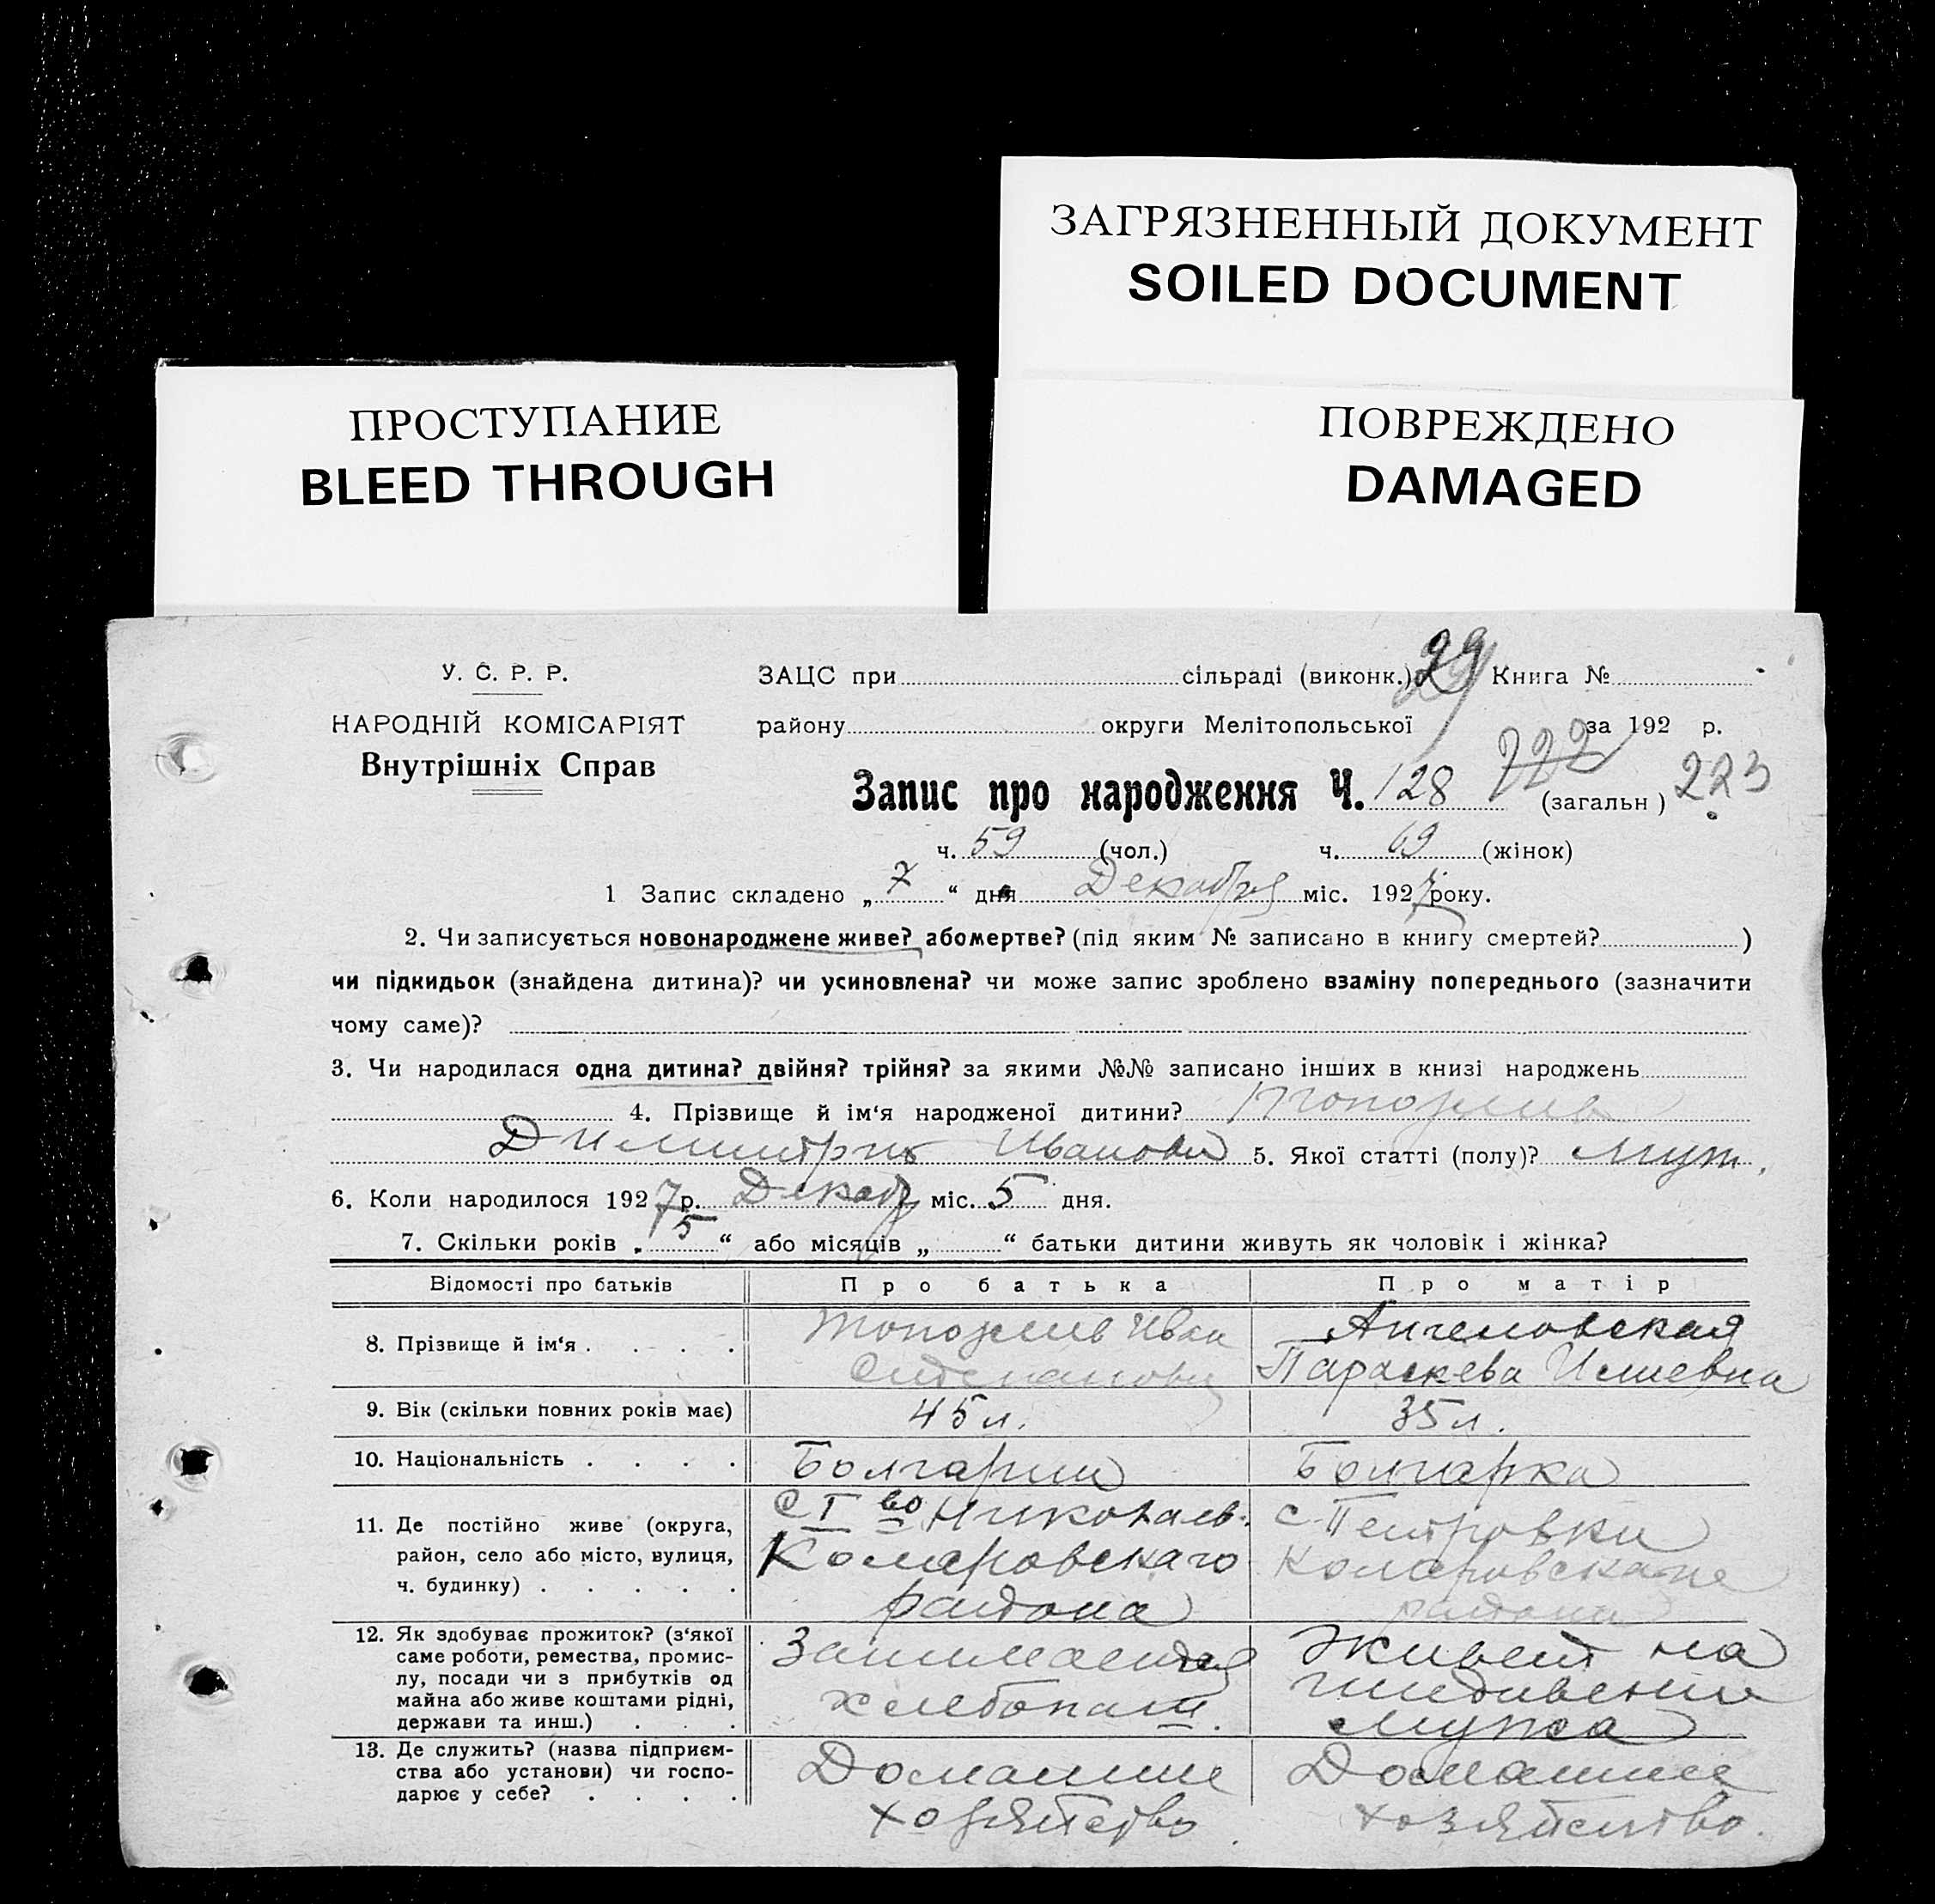 ЗАГРЯЗНЕННЫЙ ДОКУМЕНТ
SOILED DOCUMENT
ПРОСТУПАНИЕ
BLEED THROUGH
ПОВРЕЖДЕНО
DAMAGED
У. С. Р. Р.
НАРОДНІЙ КОМІСАРІЯТ
Внутрішніх Справ
ЗАЦС при сільраді (виконк.) 29 Книга №
району округи Мелітопольської за 192 р.
Запис про народження Ч. 128 222 (загальн) 223
ч. 59 (чол.) ч. 69 (жінок)
1 Запис складено „ 7 “ дня Декабря міс. 1927 року.
2. Чи записується новонароджене живе? або мертве? (під яким № записано в книгу смертей? )
чи підкидьок (знайдена дитина)? чи усиновлена? чи може запис зроблено взаміну попереднього (зазначити
чому саме)?
3. Чи народилася одна дитина? двійня? трійня? за якими №№ записано інших в книзі народжень
4. Прізвище й ім‘я народженої дитини?
Димитрий Иванови 5. Якої статті (полу)? муж.
6. Коли народилося 1927 р. Декабр міс. 5 дня.
7. Скільки років „ 5 “ або місяців „ “ батьки дитини живуть як чоловік і жінка?
Відомості про батьків Про батька Про матір
8. Прізвище й ім‘я . . . .
Иван
Степанови
Ангеловская
Параскева Илиевна
9. Вік (скільки повних років має) 45 л. 35 л.
10. Національність . . . . Болгарин Болгарка
11. Де постійно живе (округа,
район, село або місто, вулиця,
ч. будинку) . . . . .
с I во Николаев.
Комаровскаго
района
с Петровки
Комаровскаго
района
12. Як здобуває прожиток? (з‘якої
саме роботи, ремества, промис-
лу, посади чи з прибутків од
майна або живе коштами рідні,
держави та инш.) . . .
Занимается
хлебопаш.
Живет на
иждивении
мужа
13. Де служить? (назва підприєм-
ства або установи) чи госпо-
дарює у себе? . . . .
Домашнее
хозяйство
Домашнее
хозяйство.